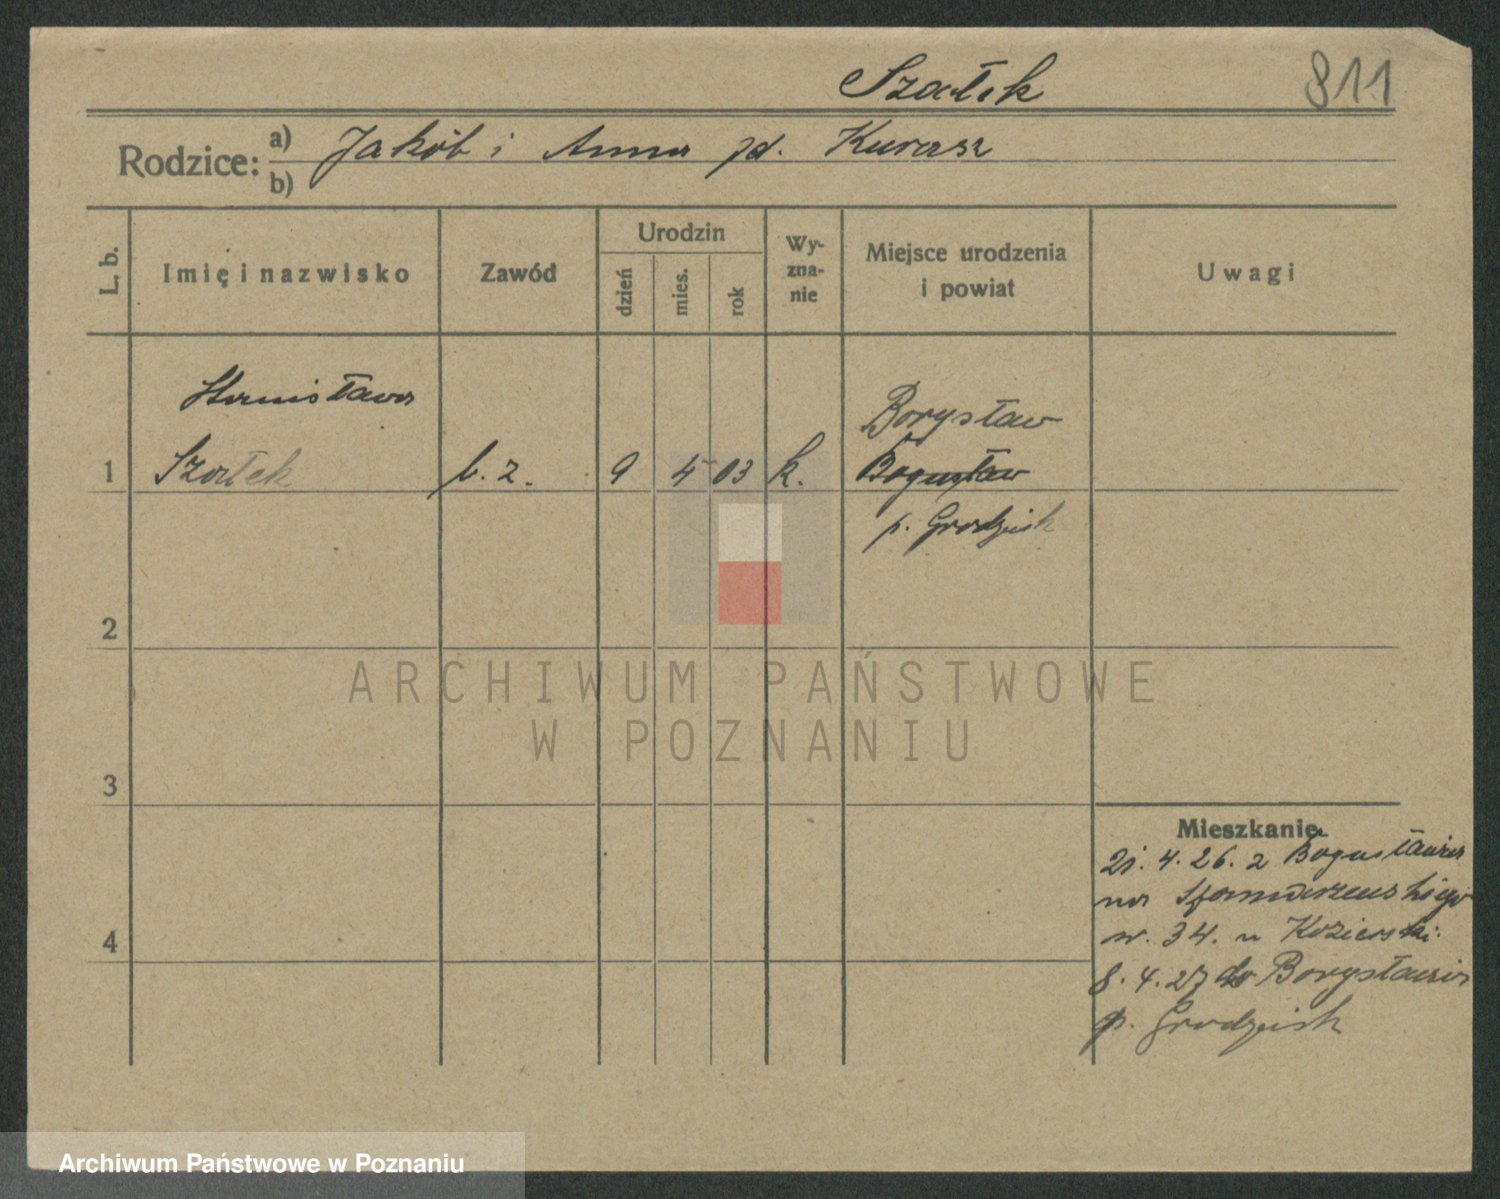 Szołek
811
Rodzice:
a) Jakób i Anna zd. Kurasz
b)
L. b.
Imię i nazwisko
Zawód
Urodzin
dzień
mies.
rok
Wy-
zna-
nie
Miejsce urodzenia
i powiat
Uwagi
Stanisława
Borysław
1 Szołek b. z. 9 4 03 k. Bogusław
p. Grodzisk
2
ARCHIWUM PAŃSTWOWE
W POZNANIU
3
Mieszkanie
21. 4. 26. z Bogusławia
na
4 34. u Kozierski.
8. 4. 27 do Borysławia
p. Grodzisk
Archiwum Państwowe w Poznaniu